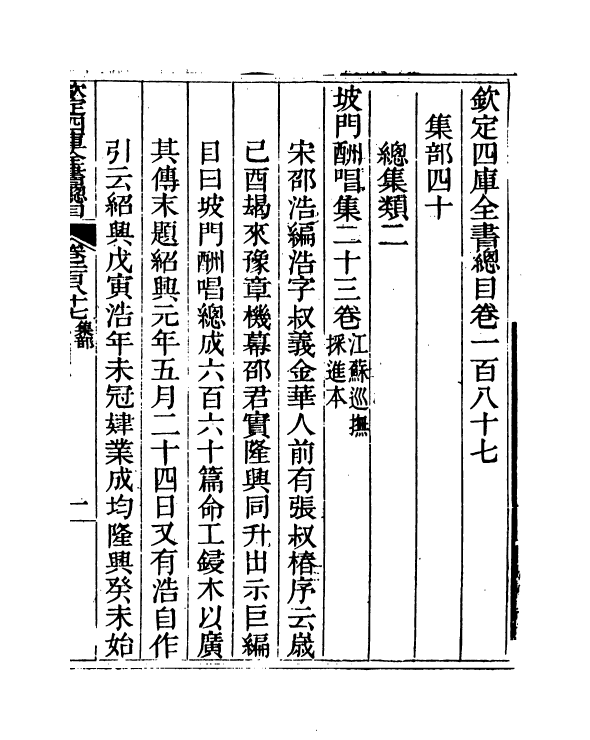 欽定四庫全書總目卷一百八十七
集部四十
總集類二
坡門酬唱集二十三卷
江蘇巡撫
採進本
宋邵浩編浩字叔義金華人前有張叔椿序云歳
己酉朅來豫章機幕邵君實隆興同升出示巨編
目曰坡門酬唱總成六百六十篇命工鋟木以廣
其傳末題紹興元年五月二十四日又有浩自作
引云紹興戊寅浩年未冠肄業成均隆興癸未始
欽定四庫全書總目
卷一百八十七
集部
一